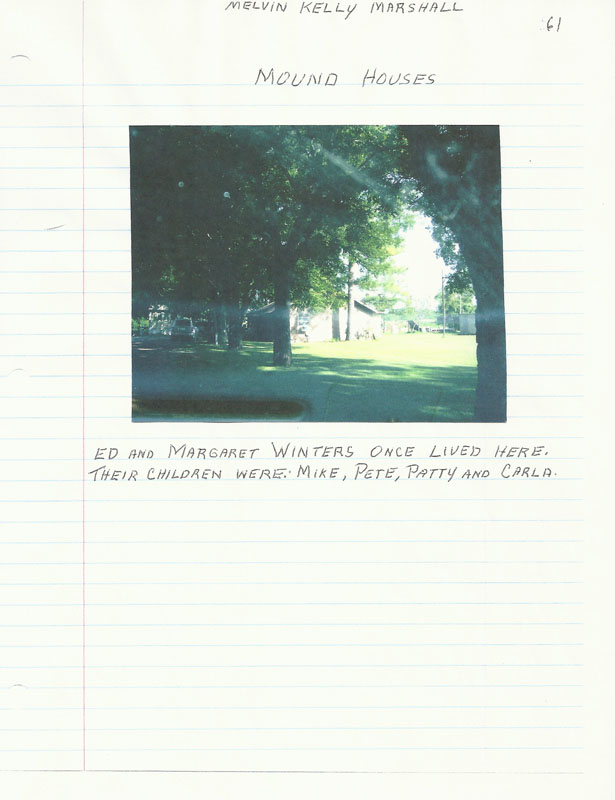 MELVIN KELLY MARSHALL
61
MOUND HOUSES
ED AND MARGARET WINTERS ONCE LIVED HERE.
THEIR CHILDREN WERE: MIKE, PETE, PATTY AND CARLA.